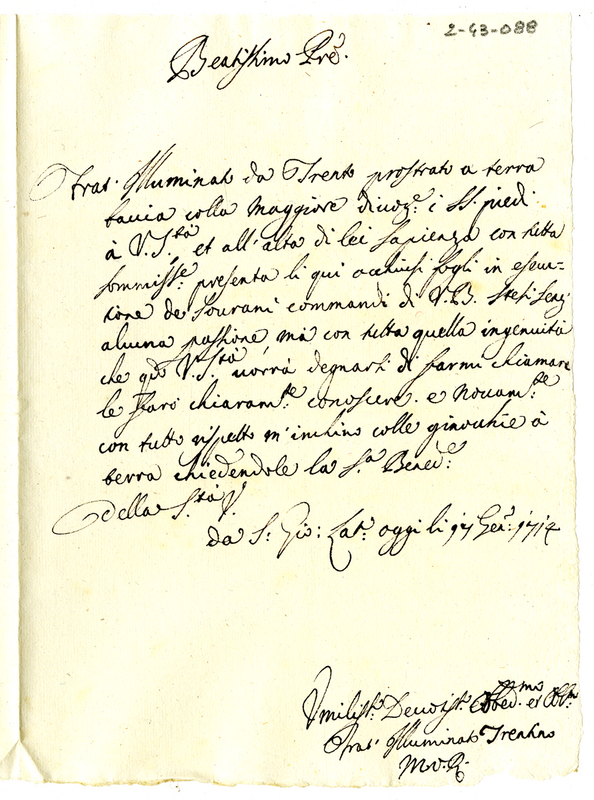 2-43-088
Beatissimo Pre.
Frat' Illuminato da Trento prostrato a terra
baccia colla maggiore divoz.e i SS. piedi
à V. S.tà, et all'alta di lei sapienza con tutta
sommiss.e presenta li qui acchiusi fogli in esecu=
zione de Sourani commandi di V. B. stesi senz'
alcuna passione, mà con tutta quella ingenuità
che qdo V. S.tà vorrà degnarsi di farmi chiamare
le farò chiaram.te conoscere. e Nouam.te
con tutto rispetto m'inchino colle ginocchie à
terra chiedendole la S.a Bened.e
Della S.tà V.
da S. Gio: Lat.o oggi li 17 Gen. 1714
Umiliss.o Deuotiss.o Obbed.mo et Obl.mo
Frat' Illuminato Trentino
M. O. R.